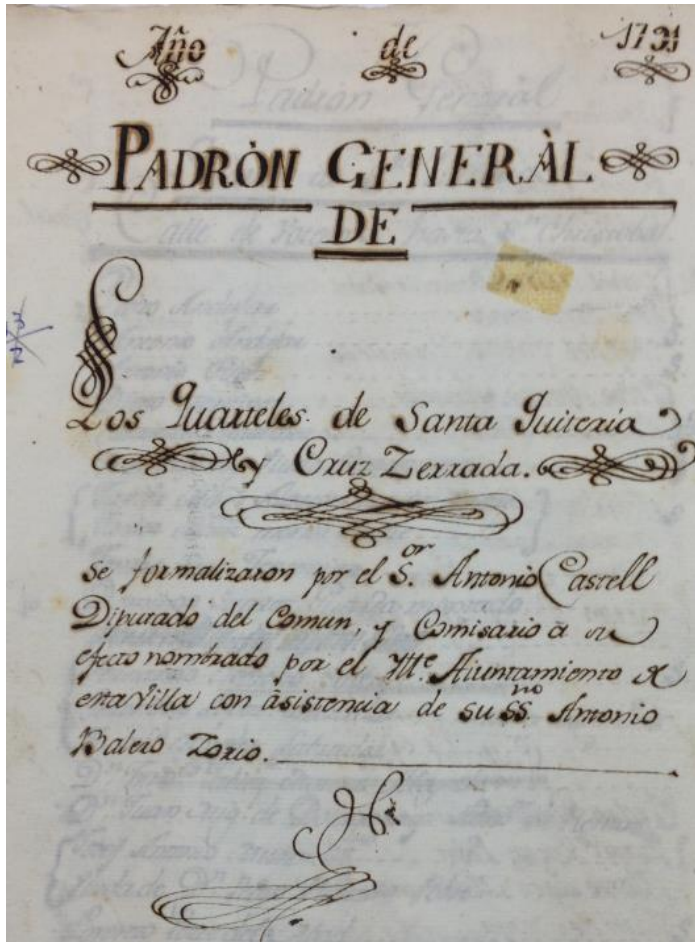 Año de 1791
PADRÒN GENERÀL
DE
Los Quarteles de Santa Quiteria
y Cruz Zerrada.
Se formalizaron por el S.or Antonio Castell
Diputado del Comun, y Comisario a su
efecto nombrado por el Ill.e Aiuntamiento de
esta Villa con asistencia de su SS.no Antonio
Balero Zorio.